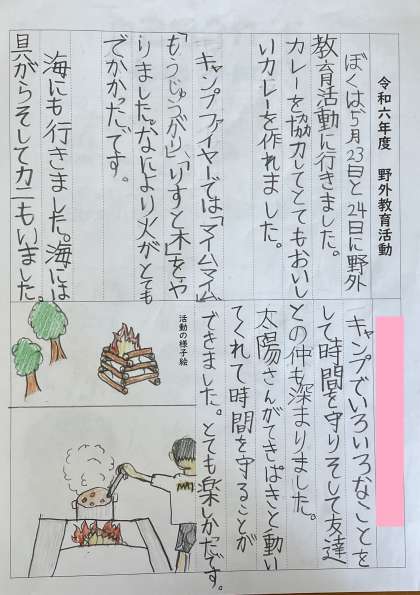 令和六年度　野外教育活動
ぼくは5月23日と24日に野外
教育活動に行きました。
カレーを協力してとてもおいし
いカレーを作れました。
キャンプファイヤーでは「マイムマイム」
「もうじゅうがり」、「りすと木」をや
りました。なにより火がとても
でかかったです。
海にも行きました。海には
貝がらそしてカニもいました。
キャンプでいろいろなことを
して時間を守りそして友達
との仲も深まりました。
太陽さんがてきぱきと動い
てくれて時間を守ることが
できました。とても楽しかたです。
活動の様子絵